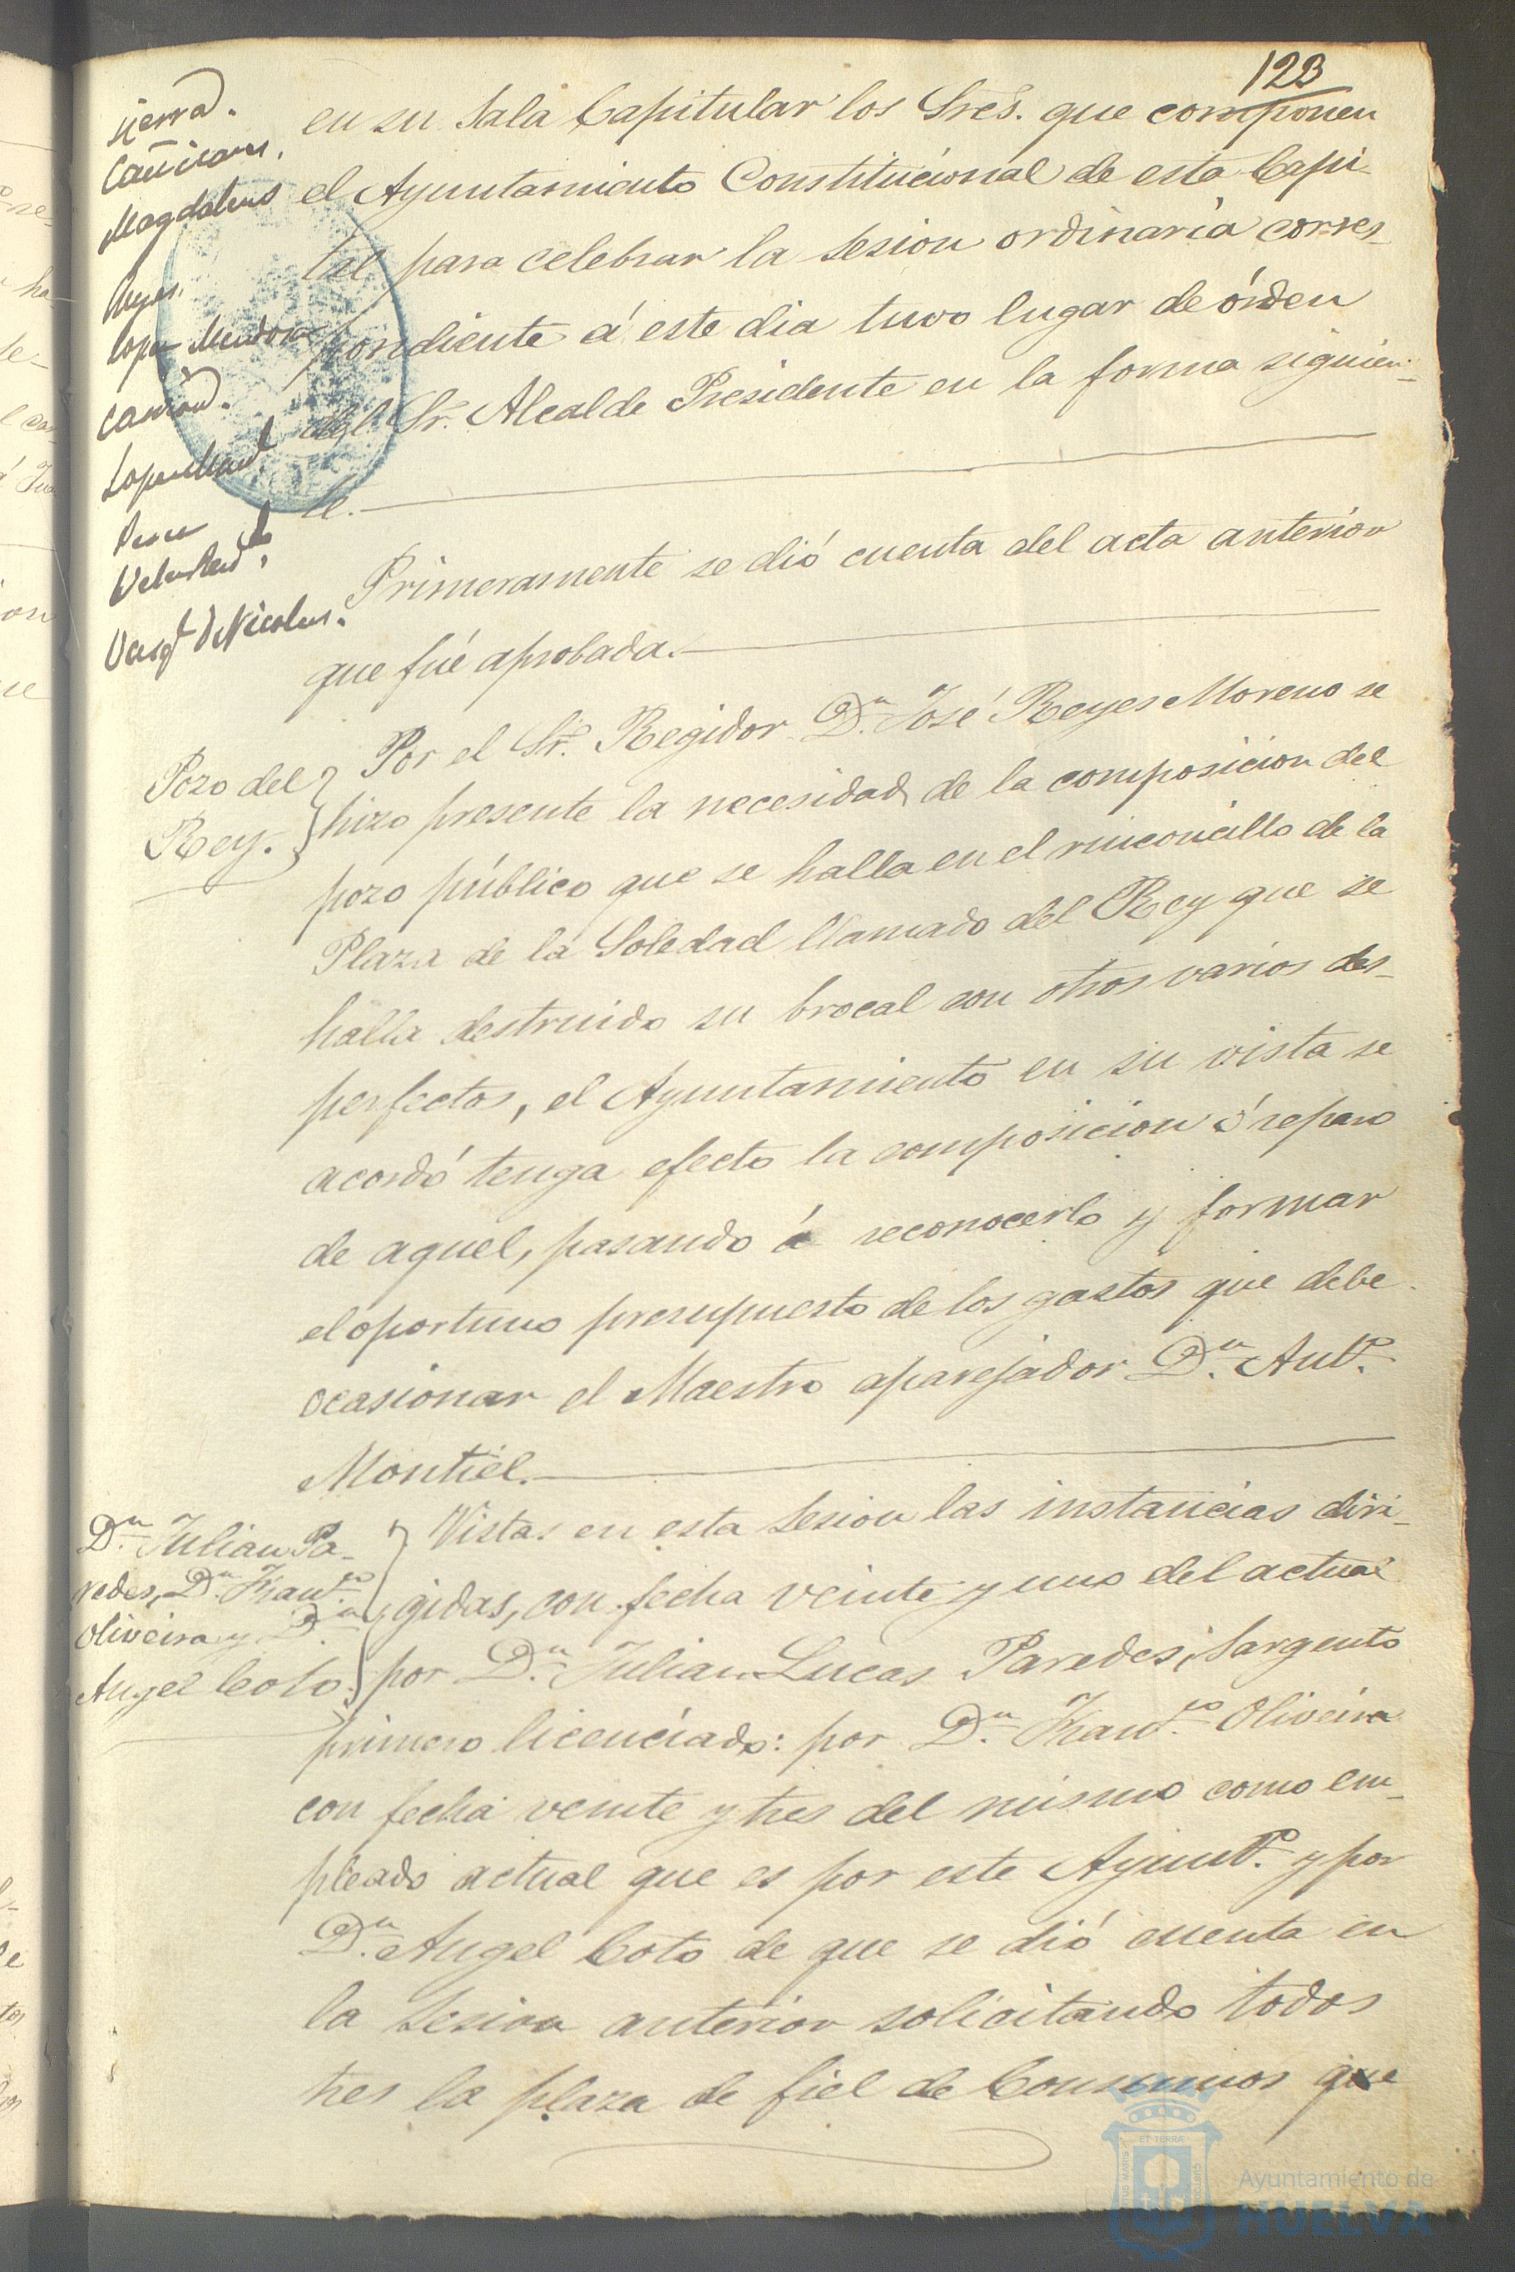 123
Sierra.
Magdaleno
Reyes.
Lopez Mendoza
en su Sala Capitular los Sres. que componen
el Ayuntamiento Constitucional de esta Capi-
tal para celebrar la sesion ordinaria corres-
pondiente á este dia tuvo lugar de órden
del Sr. Alcalde Presidente en la forma siguien-
te.
Primeramente se dió cuenta del acta anterior
que fué aprobada.
Pozo del
Rey.
Por el Sr. Regidor Dn. José Reyes Moreno se
hizo presente la necesidad de la composicion del
pozo público que se halla en el rinconcillo de la
Plaza de la Soledad llamado del Rey que se
halla destruido su brocal con otros varios des-
perfectos, el Ayuntamiento en su vista se
acordó tenga efecto la composicion ó reparo
de aquel, pasando á reconocerlo y formar
el oportuno presupuesto de los gastos que debe
ocasionar el Maestro aparejador Dn. Anto.
Montiel.
Dn. Julian Pa-
redes, Dn. Franco.
Oliveira y Dn.
Angel Coto.
Vistas en esta sesion las instancias diri-
gidas, con fecha veinte y uno del actual
por Dn. Julian Lucas Paredes, Sargento
primero licenciado: por Dn. Franco. Oliveira
con fecha veinte y tres del mismo como em-
pleado actual que es por este Ayunto. y por
Dn. Angel Coto de que se dió cuenta en
la sesion anterior solicitando todos
tres la plaza de fiel de Consumos que
Ayuntamiento de
HUELVA